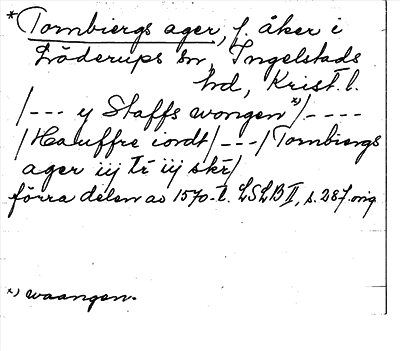 *Tornbiergs ager, f. åker i
Löderups sn, Ingelstads
hd, Krist. l.
/--- y Staffs wongen*)/----
/Hauffre iordt/---/Tornbiergs
ager iij tr iij skr/
förra delen av 1570-t. LSLB II, s. 287. orig
*) waangen.